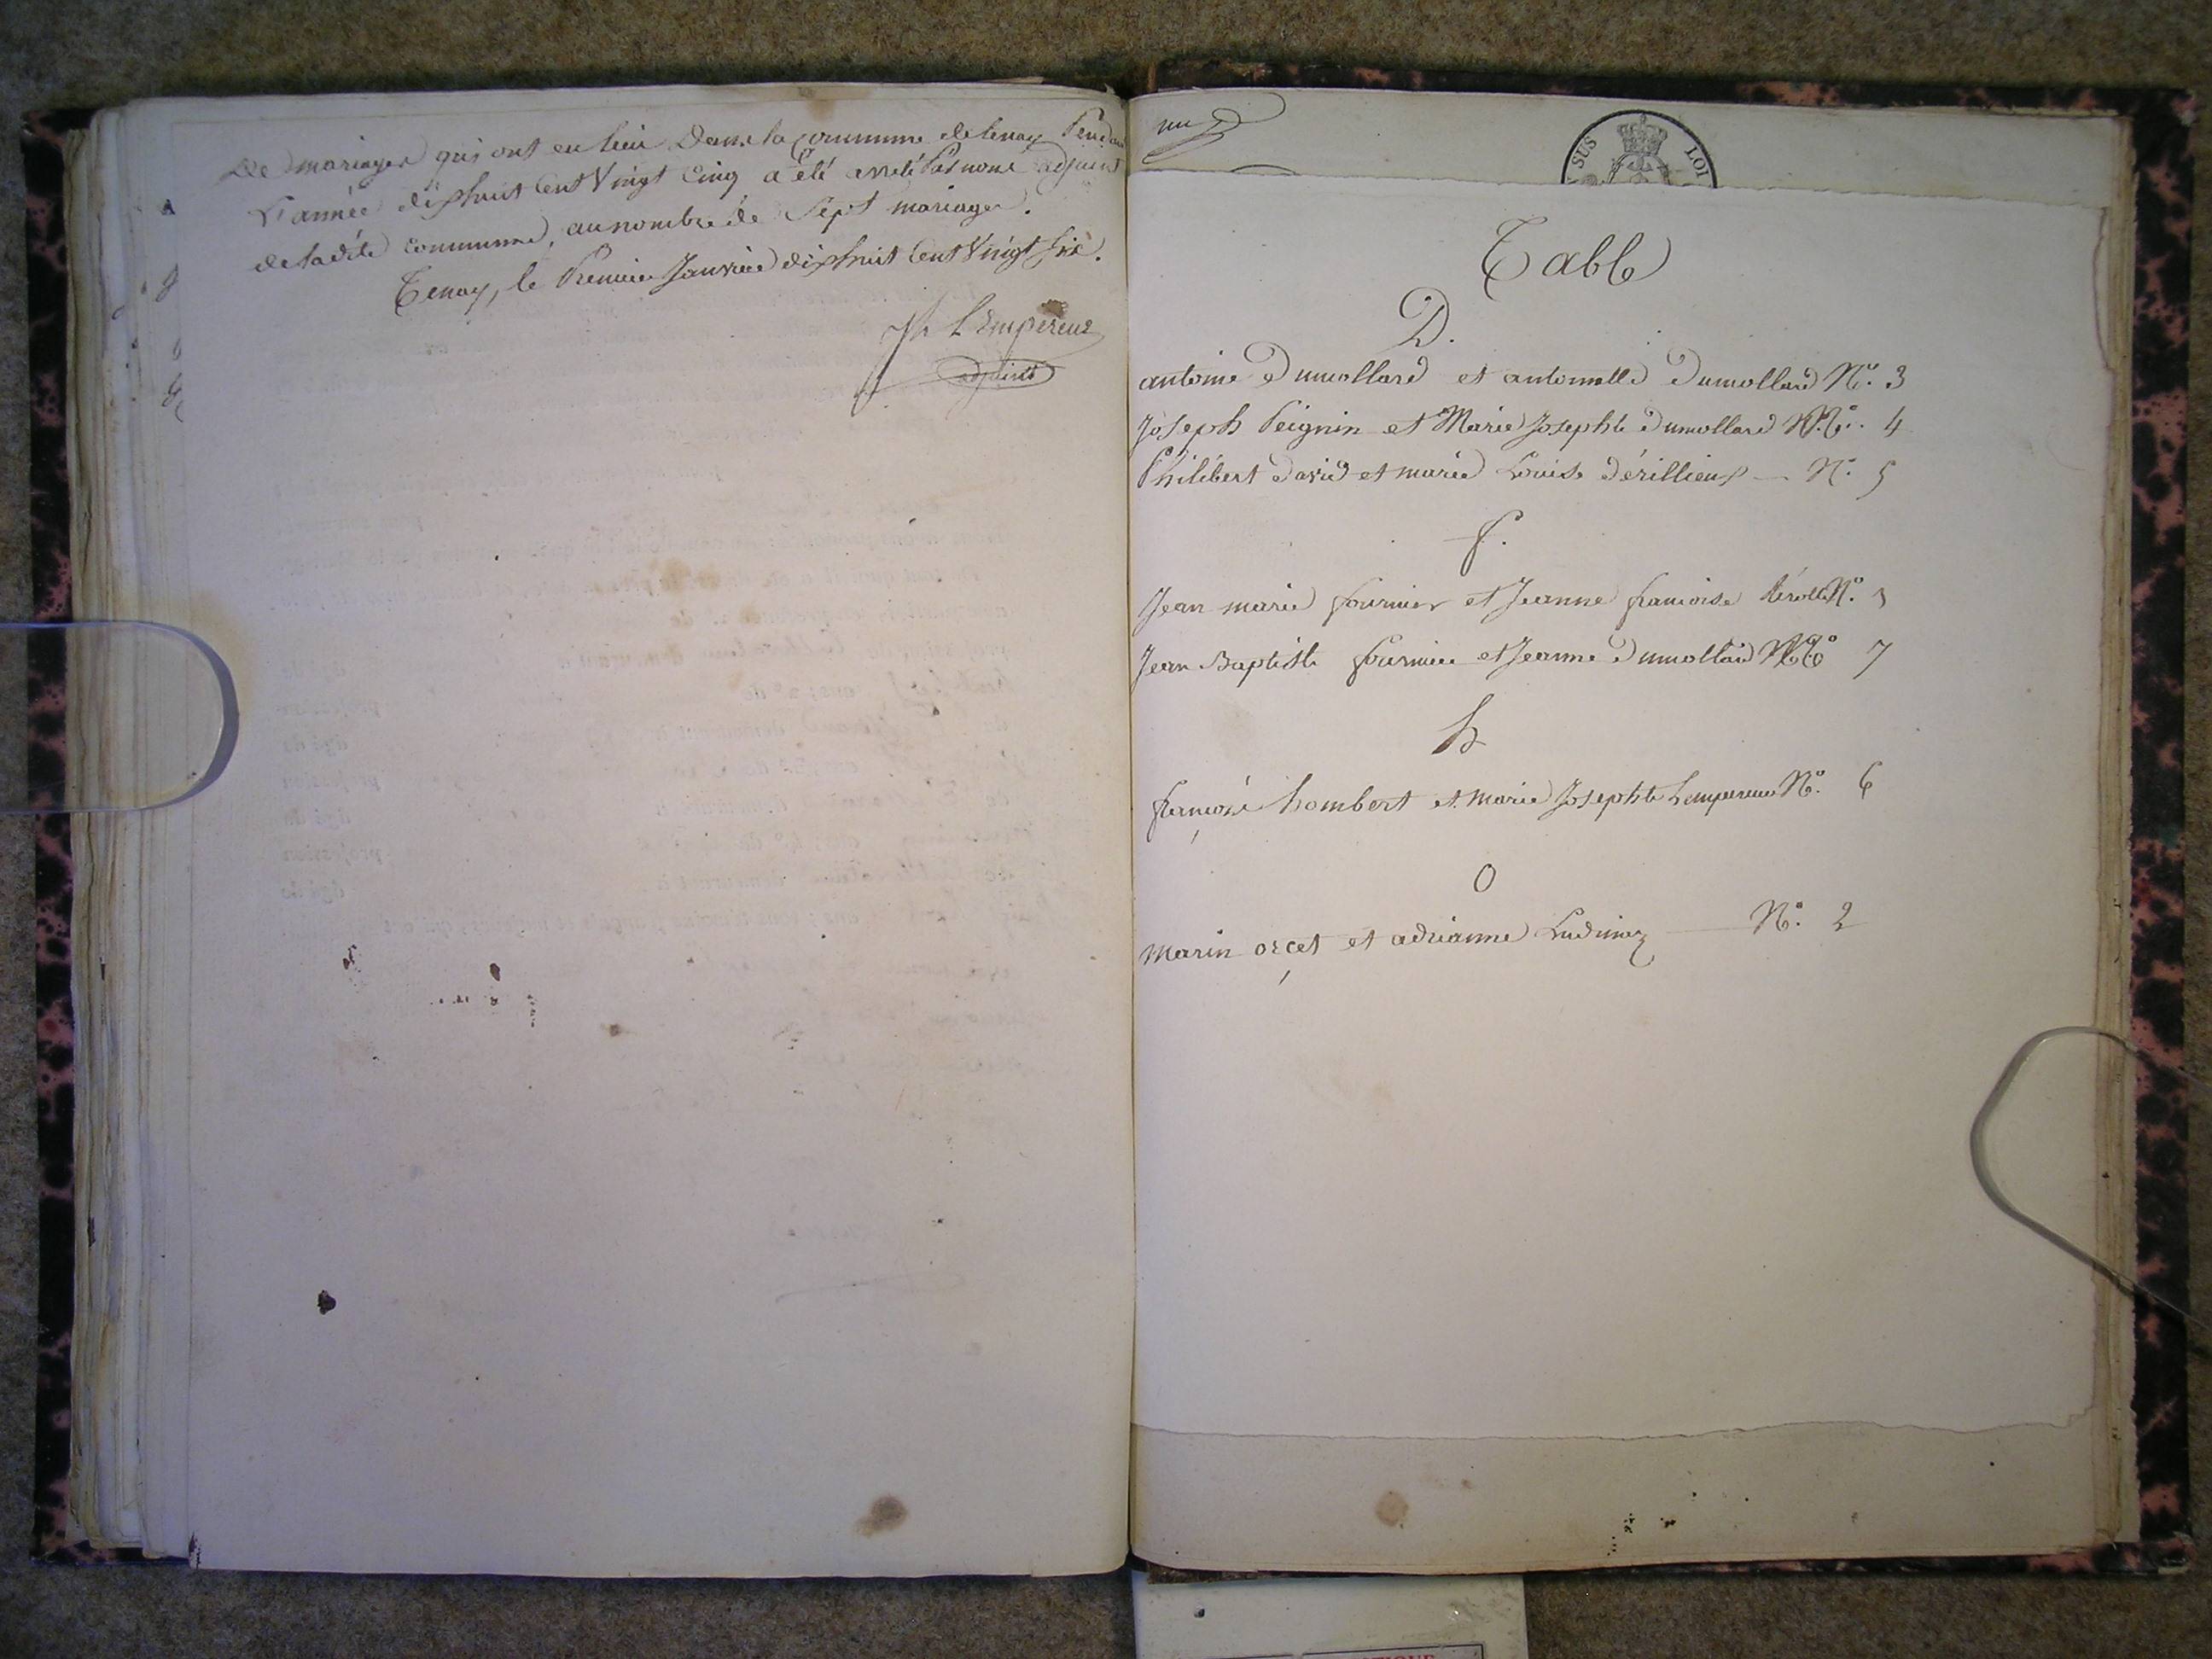 De mariages qui ont eu lieu Dans la Commune de tenay Pendant
L'année dixhuit Cent Vingt Cinq a été arrêté Par nous adjoint
de ladite commune, au nombre de Sept mariages.
Tenay, le Premier Janvier dixhuit Cent Vingt Six.
L'Empereur
adjoint
SUS LOI
Table
D.
antoine Dumollard et antoinette Dumollard N° 3
Joseph Peignin et Marie Josephte Dumollard N°. 4
Philibert David et marie Louise Dérillieux — N°. 5
f.
Jean marie fournier et Jeanne francoise N°.
Jean Baptiste fournier et Jeanne Dumollard N° 7
h
françois hombert et marie Josephte Lempereur N°. 6
O
Marin orcet et adrianne Ludinez — N°. 2